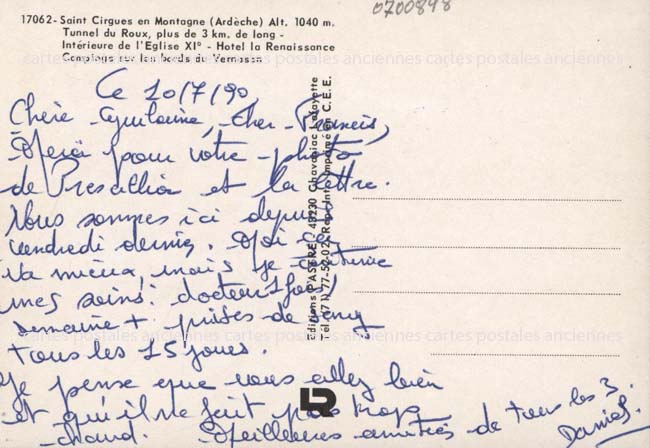 0700898
17062-Saint Cirgues en Montagne (Ardèche) Alt. 1040 m.
Tunnel du Roux, plus de 3 km. de long -
Intérieure de l'Eglise XI° - Hotel la Renaissance
Campings sur les bords du Vernason
cartes postales anciennes cartes postales anciennes cartes postales anciennes
Ce 10/7/90
Chère Guilaine, Cher Francis,
Merci pour votre photo
de Presailles et la lettre.
Nous sommes ici depuis
vendredi dernier. Moi ça
va mieux, mais je continue
mes soins: docteur 1 fois/
semaine + prises de
tous les 15 jours.
Je pense que vous allez bien
et qu'il ne fait pas trop
chaud. Meilleures amitiés de tous les 3.
Daniel.
Editions D'ASTRE, 43230 Chavaniac Lafayette
Tél (71) 77-52-02 Rep. Int. Imprimé en C.E.E.
LR
cartes postales anciennes cartes postales anciennes cartes postales anciennes